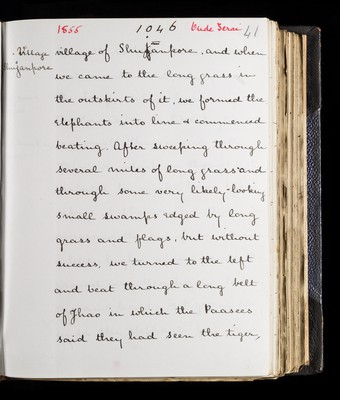 1855 1046 Oude Terai 41
Village
Shujanpore
village of Shujanpore, and when
we came to the long grass in
the outskirts of it, we formed the
Elephants into line & commenced
beating. After sweeping through
several miles of long grass and
through some very likely-looking
small swamps edged by long
grass and flags, but without
success, we turned to the left
and beat through a long belt
of Jhao in which the Paasees
said they had seen the tiger,